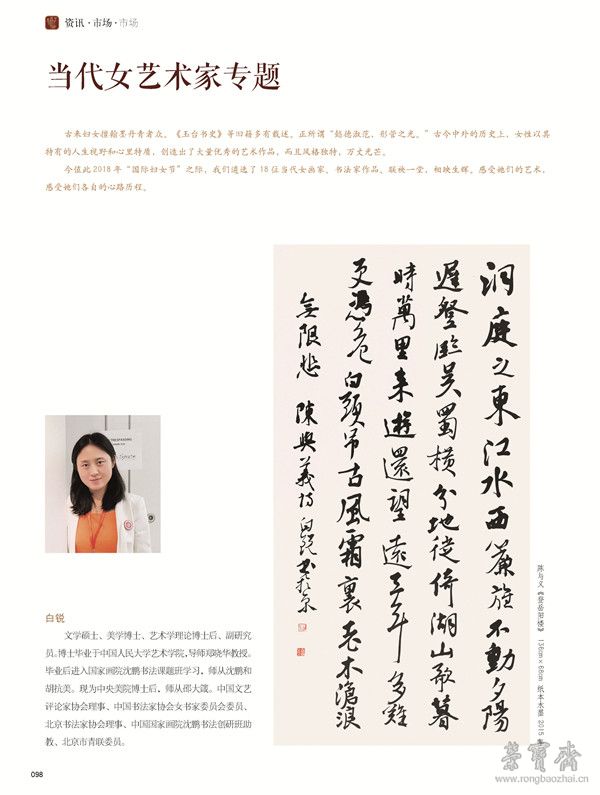 资讯·市场·市场
当代女艺术家专题
古来妇女擅翰墨丹青者众。《玉台书史》等旧籍多有载述。正所谓“懿德淑范，彤管之光。”古今中外的历史上，女性以其
特有的人生视野和心里特质，创造出了大量优秀的艺术作品，而且风格独特，万丈光芒。
今值此2018年“国际妇女节”之际，我们遴选了18位当代女画家、书法家作品，联袂一堂，相映生辉。感受她们的艺术，
感受她们各自的心路历程。
洞庭之東江水西簾旌不動夕陽
遲登臨吳蜀橫分地徙倚湖山欲暮
時萬里來遊還望遠三年多難
更憑危白頭吊古風霜裏老木滄浪
無限悲 陳與義詩 白銳書於京
陈与义《登岳阳楼》 136cm×68cm 纸本水墨 2015年
白锐
文学硕士、美学博士、艺术学理论博士后、副研究
员。博士毕业于中国人民大学艺术学院，导师郑晓华教授。
毕业后进入国家画院沈鹏书法课题班学习，师从沈鹏和
胡抗美。现为中央美院博士后，师从邵大箴。中国文艺
评论家协会理事、中国书法家协会女书家委员会委员、
北京书法家协会理事、中国国家画院沈鹏书法创研班助
教、北京市青联委员。
098
榮寶齋
www.rongbaozhai.cn